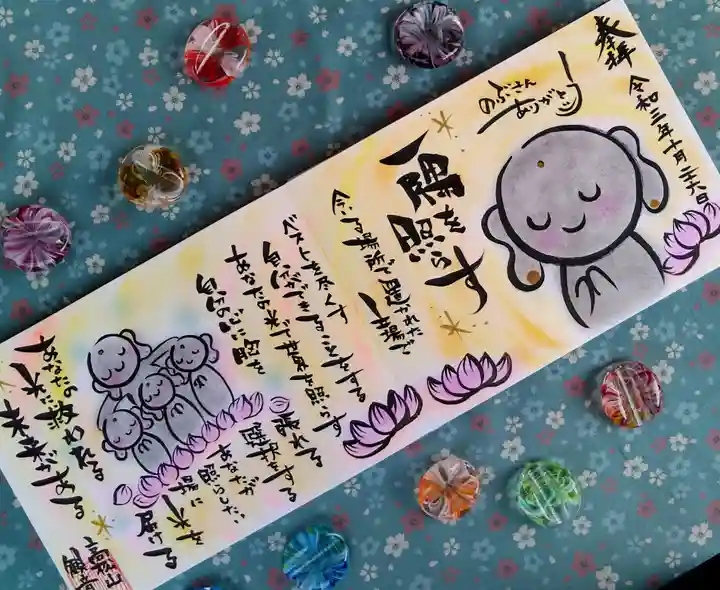 奉拝
令和三年十月二十六日
のぶさん
ありがとう
一隅を
照らす
今いる場所で置かれた
場で
ベストを尽くす
自分ができることをする
あなたの光で世界を照らす
自分の心に胸を
張れる
選択をする
あなたが
照らしたい
場に
光を
届ける
あなたの
光に救われる
未来がある
高松山
観音